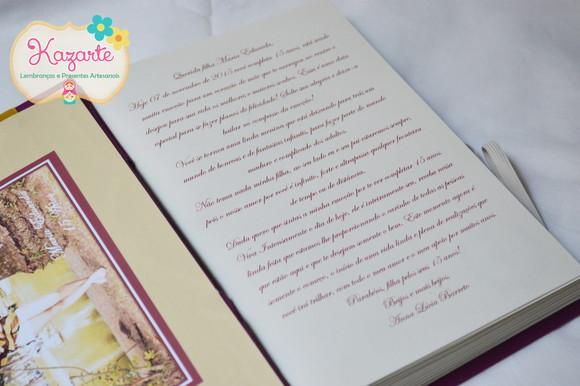 Kazarte
Lembranças e Presentes Artesanais
Querida filha Maria Eduarda,
Hoje 07 de novembro de 2015 você completa 15 anos, está sendo
muita emoção para um coração de mãe que te carregou no ventre e
desejou para sua vida os melhores e maiores sonhos. Essa é uma data
especial para se fazer planos de felicidade! Solte sua alegria e deixe-a
bailar no compasso da emoção!
Você se tornou uma linda menina que está deixando para trás um
mundo de bonecas e de fantasias infantis, para fazer parte do mundo
maduro e complicado dos adultos.
Não tema nada minha filha, ao seu lado eu e seu pai estaremos sempre,
pois o nosso amor por você é infinito, forte e ultrapassa qualquer fronteira
de tempo ou de distância.
Duda quero que sintas a minha emoção por te ver completar 15 anos.
Viva Intensamente o dia de hoje, ele é inteiramente seu, receba nossa
linda festa que estamos lhe proporcionando o carinho de todas as pessoas
que estão aqui e que te desejam somente o bem. Este momento agora é
somente o começo, o início de uma vida linda e plena de realizações que
você irá trilhar, com todo o meu amor e o meu apoio por muitos anos.
Parabéns, filha pelos seus 15 anos!
Beijos e mais beijos,
Anna Lívia Barreto